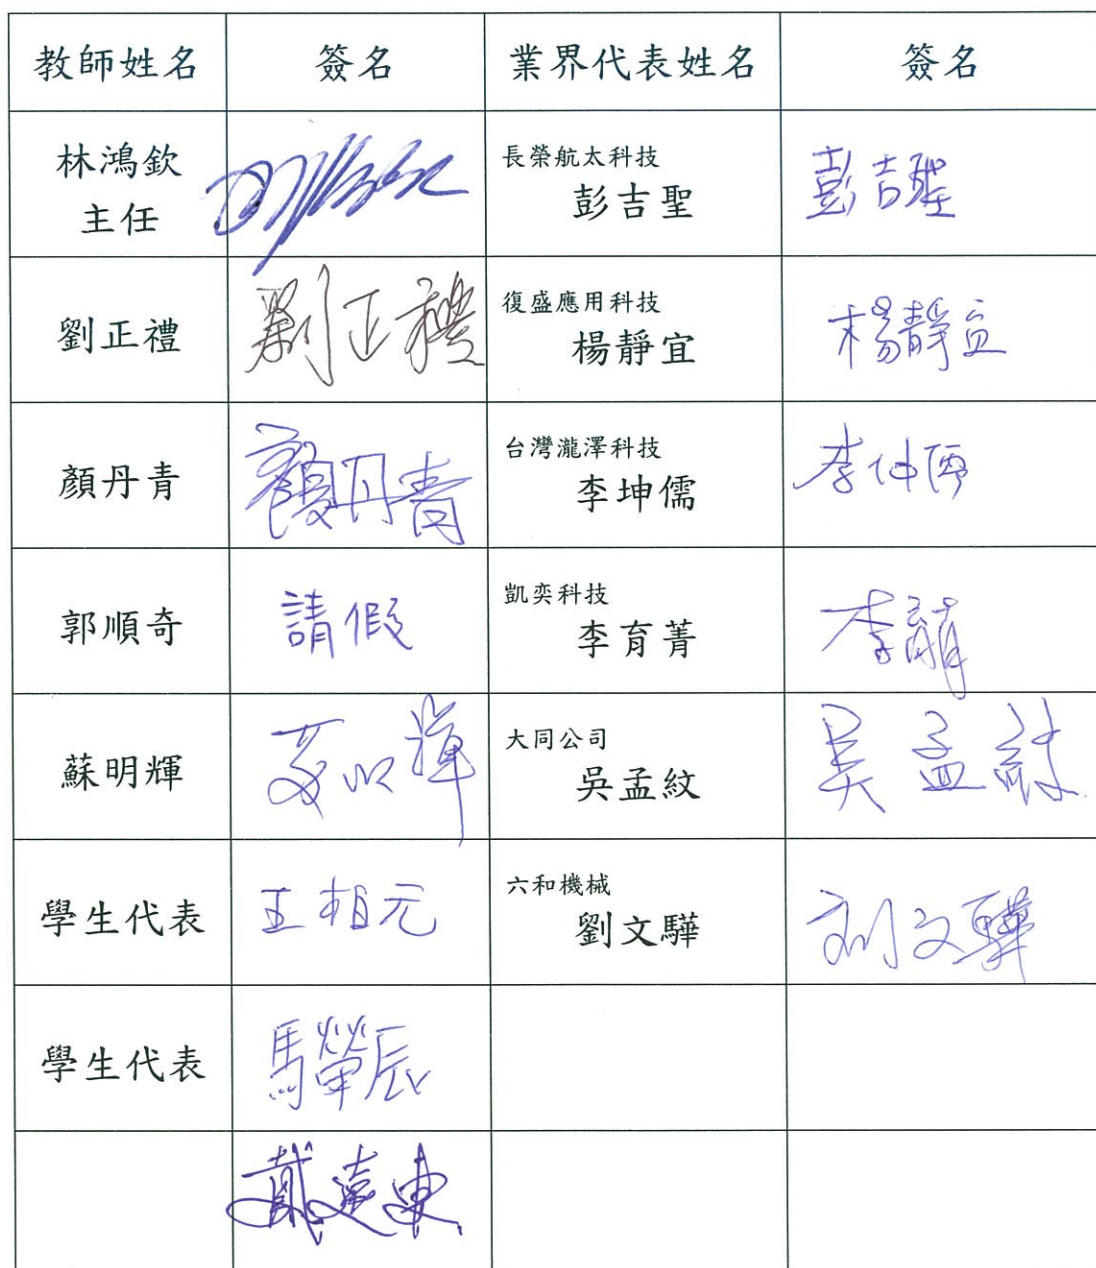 教師姓名 簽名 業界代表姓名 簽名
林鴻欽
主任
長榮航太科技
彭吉聖 彭吉聖
劉正禮 劉正禮
復盛應用科技
楊靜宜 楊靜宜
顏丹青 顏丹青
台灣瀧澤科技
李坤儒 李坤儒
郭順奇 請假
凱奕科技
李育菁 李育菁
蘇明輝 蘇明輝
大同公司
吳孟紋 吳孟紋
學生代表 王相元
六和機械
劉文驊 刘文驊
學生代表 馬榮辰
戴遠東